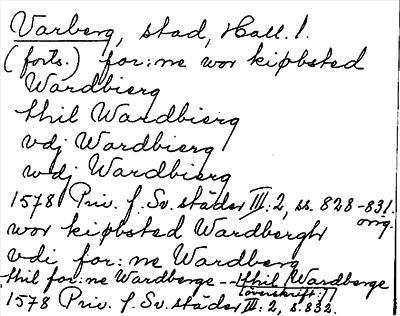 Varberg, stad, Hall. l.
(forts.) for:ne wor kiøbsted
Wardbierg
thil Wardbierg
vdj Wardbierg
wdj Wardbierg
1578 Priv. f. Sv. städer III:2, ss. 828-831.
orig.
wor kiøbsted Wardberghr
vdi for:ne Wardberg
thil for:ne Wardberge -- thil Wardberge
(överskrift:)
1578 Priv. f. Sv. städer III:2, s. 832.